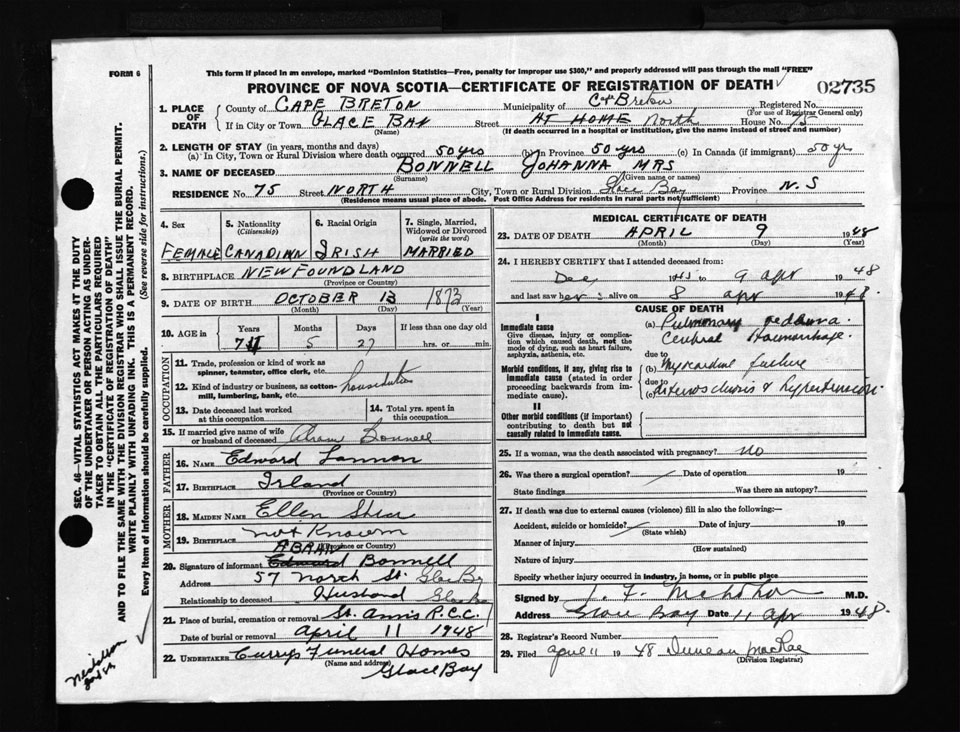 FORM 6
This form if placed in an envelope, marked "Dominion Statistics—Free, penalty for improper use $300," and properly addressed will pass through the mail "FREE"
PROVINCE OF NOVA SCOTIA—CERTIFICATE OF REGISTRATION OF DEATH
02735
1. PLACE OF DEATH
County of CAPE BRETON Municipality of C. Breton Registered No.
(For use of Registrar General only)
If in City or Town GLACE BAY Street AT HOME North House No. 75
(Name) (If death occurred in a hospital or institution, give the name instead of street and number)
2. LENGTH OF STAY (in years, months and days)
(a) In City, Town or Rural Division where death occurred 50 yrs (b) In Province 50 yrs (c) In Canada (if immigrant) 50 yr
3. NAME OF DECEASED BONNELL JOHANNA MRS
(Surname) (Given name or names)
RESIDENCE No. 75 Street NORTH City, Town or Rural Division Glace Bay Province N.S
(Residence means usual place of abode. Post Office Address for residents in rural parts not sufficient)
4. Sex FEMALE
5. Nationality (Citizenship) CANADIAN
6. Racial Origin IRISH
7. Single, Married, Widowed or Divorced (write the word) MARRIED
8. BIRTHPLACE NEWFOUNDLAND
(Province or Country)
9. DATE OF BIRTH OCTOBER 13 1873
(Month) (Day) (Year)
10. AGE in Years Months Days If less than one day old
5 27 hrs. or min.
OCCUPATION
11. Trade, profession or kind of work as spinner, teamster, office clerk, etc.
12. Kind of industry or business, as cotton-mill, lumbering, bank, etc.
13. Date deceased last worked at this occupation
14. Total yrs. spent in this occupation
15. If married give name of wife or husband of deceased Abram Bonnell
FATHER
16. NAME Edward Lannon
17. BIRTHPLACE Irland
(Province or Country)
MOTHER
18. MAIDEN NAME Ellen Shea
19. BIRTHPLACE not Known
(Province or Country)
ABRAM
20. Signature of informant Edward Bonnell
Address 57 North St. Glace Bay
Relationship to deceased Husband
21. Place of burial, cremation or removal St. Anns R.C.C.
Date of burial or removal April 11 1948
22. UNDERTAKER Currys Funeral Homes
(Name and address)
Glace Bay
MEDICAL CERTIFICATE OF DEATH
23. DATE OF DEATH APRIL 9 1948
(Month) (Day) (Year)
24. I HEREBY CERTIFY that I attended deceased from:
Dec 1945 to 9 Apr 1948
and last saw her alive on 8 apr 1948.
CAUSE OF DEATH
I
Immediate cause
Give disease, injury or complication which caused death, not the mode of dying, such as heart failure, asphyxia, asthenia, etc.
(a) Pulmonary oedema
Cerebral Haemorrhage
due to
Morbid conditions, if any, giving rise to immediate cause (stated in order proceeding backwards from immediate cause).
(b) Myocardial failure
due to
(c) Arteriosclerosis & Hypertension
II
Other morbid conditions (if important) contributing to death but not causally related to immediate cause.
25. If a woman, was the death associated with pregnancy? no
26. Was there a surgical operation? Date of operation 19
State findings Was there an autopsy?
27. If death was due to external causes (violence) fill in also the following:—
Accident, suicide or homicide? Date of injury 19
(State which)
Manner of injury
(How sustained)
Nature of injury
Specify whether injury occurred in industry, in home, or in public place
Signed by M.D.
Address Glace Bay Date 11 apr 1948.
28. Registrar's Record Number
29. Filed april 11 1948 Duncan MacRae
(Division Registrar)
SEC. 46—VITAL STATISTICS ACT MAKES IT THE DUTY
OF THE UNDERTAKER OR PERSON ACTING AS UNDER-
TAKER TO OBTAIN ALL THE PARTICULARS REQUIRED
IN THE "CERTIFICATE OF REGISTRATION OF DEATH"
AND TO FILE THE SAME WITH THE DIVISION REGISTRAR WHO SHALL ISSUE THE BURIAL PERMIT.
WRITE PLAINLY WITH UNFADING INK. THIS IS A PERMANENT RECORD.
Every item of information should be carefully supplied. (See reverse side for instructions.)